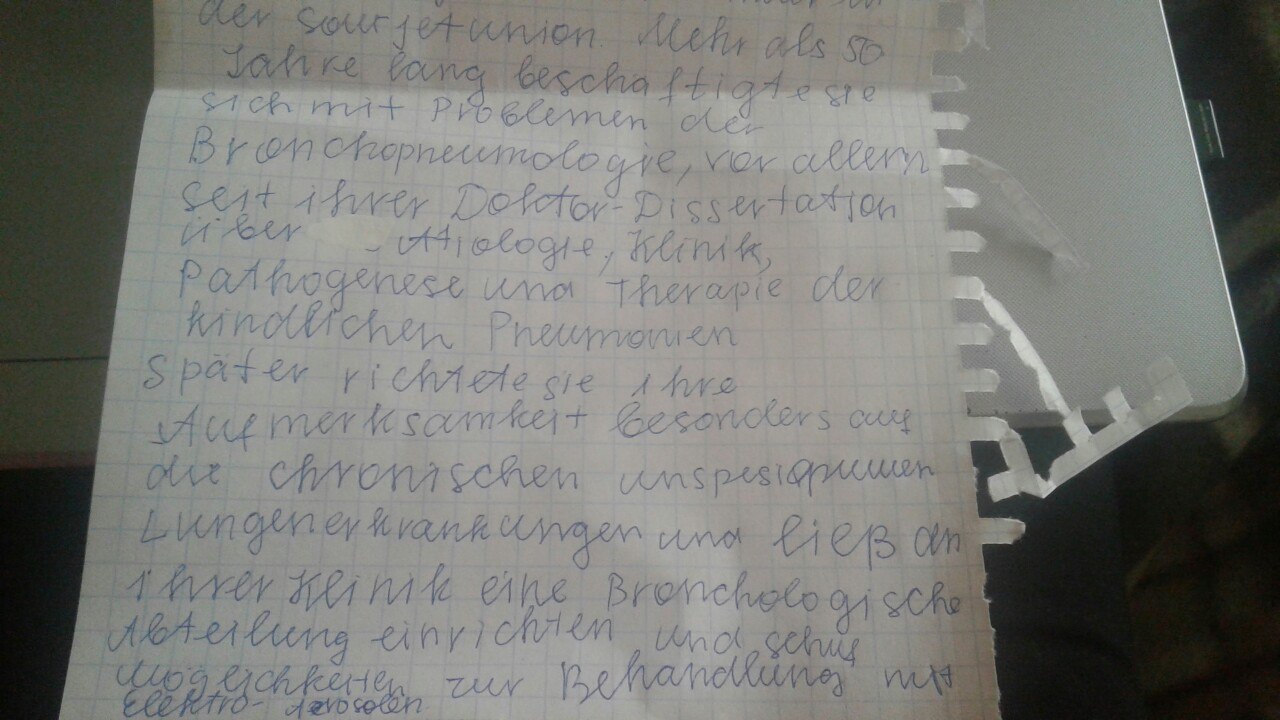 der Sowjetunion. Mehr als 50
Jahre lang beschaftigte sie
sich mit Problemen der
Bronchopneumologie, vor allem
seit ihrer Doktor-Dissertation
über Ätiologie, Klinik,
Pathogenese und Therapie der
kindlichen Pneumonien
Später richtete sie ihre
Aufmerksamkeit besonders auf
die chronischen
Lungenerkrankungen und ließ an
ihrer Klinik eine Bronchologische
Abteilung einrichten und schuf
Möglichkeiten zur Behandlung mit
Elektro-Aerosolen